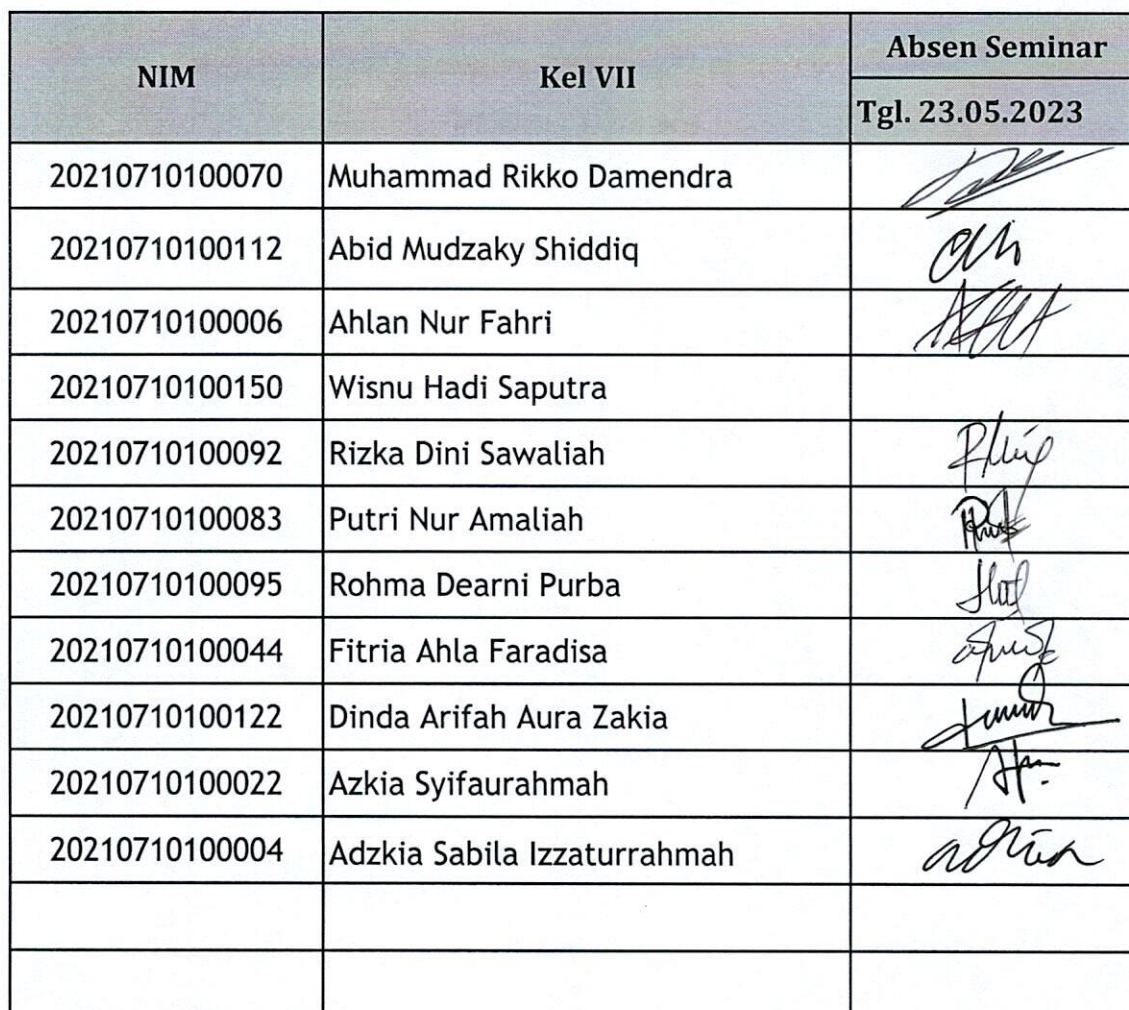 NIM Kel VII Absen Seminar
Tgl. 23.05.2023
20210710100070 Muhammad Rikko Damendra
20210710100112 Abid Mudzaky Shiddiq
20210710100006 Ahlan Nur Fahri
20210710100150 Wisnu Hadi Saputra
20210710100092 Rizka Dini Sawaliah
20210710100083 Putri Nur Amaliah
20210710100095 Rohma Dearni Purba
20210710100044 Fitria Ahla Faradisa
20210710100122 Dinda Arifah Aura Zakia
20210710100022 Azkia Syifaurahmah
20210710100004 Adzkia Sabila Izzaturrahmah